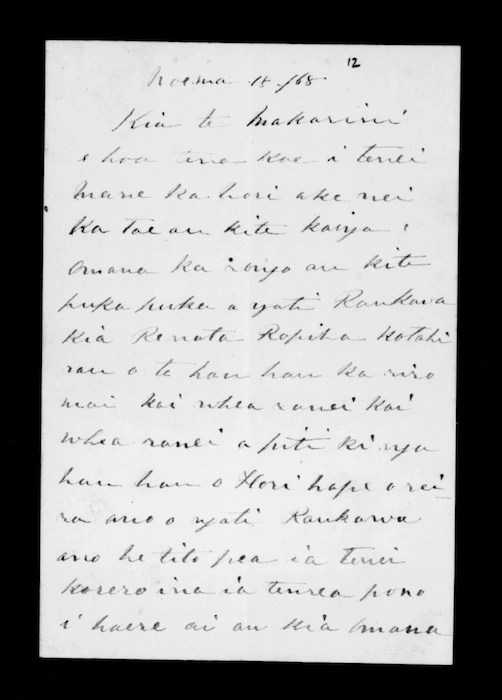 12
Noema 18/68
Kia te Makarini
e hoa tena koe i tenei
mane ka hori ake nei
Ka tae au kite kainga i
omana ka rongo au kite
puka puka a ngati Raukawa
Kia Renata Ropiha kotahi
rau o te hau hau ka riro
mai kei whea ranei kei
whea ranei apiti ki nga
hau hau o Hori hape o rei-
ra ano o ngati Raukawa
ano he tito pea ia tenei
korero ina ia tenrea pono
i haere ai au kia Omana